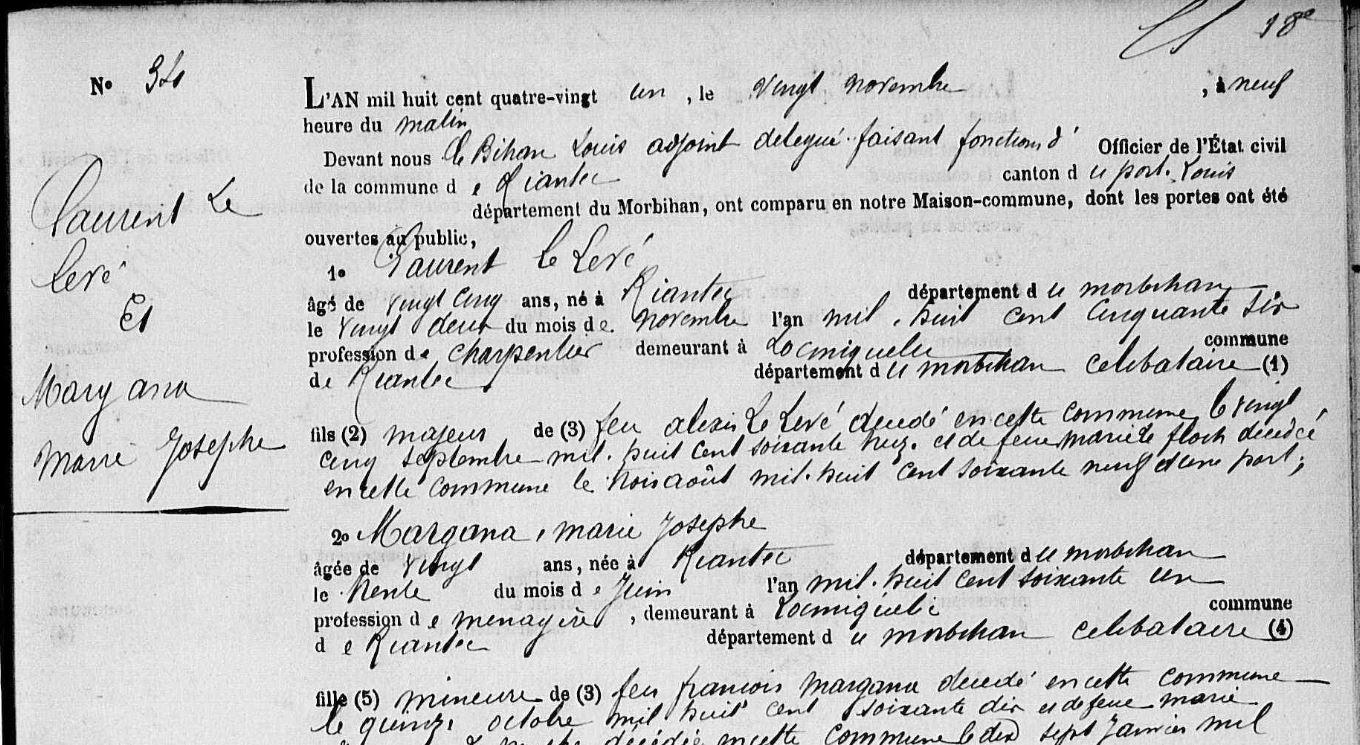 18e
No 34
L'AN mil huit cent quatre-vingt un, le vingt novembre, à neuf
heure du matin
Devant nous Le Bihan Louis adjoint délégué faisant fonction d' Officier de l'État civil
de la commune d e Riantec canton d u port. Louis
département du Morbihan, ont comparu en notre Maison-commune, dont les portes ont été
ouvertes au public,
Laurent Le
Levé
Et
Margana
Marie Josephe
1o Laurent le Levé
âgé de vingt cinq ans, né à Riantec département d u morbihan
le vingt deux du mois de novembre l'an mil. huit cent cinquante six
profession de charpentier demeurant à Locmiquelic commune
de Riantec département d u morbihan celibataire (1)
fils (2) majeur de (3) feu alexis Le Levé décédé en cette commune le vingt
cinq septembre mil. huit cent soixante et de feue marie le floch décédée
en cette commune le trois août mil. huit cent soixante neuf d'une part;
2o Margana, marie Josephe
âgée de vingt ans, née à Riantec département d u morbihan
le trente du mois d e Juin l'an mil. huit cent soixante un
profession d e menagère, demeurant à Locmiquelic commune
d e Riantec département d u morbihan celibataire (4)
fille (5) mineure de (3) feu francois margana décédé en cette commune
le quinze octobre mil huit cent soixante dix et de feue marie
décédée en cette commune le dix sept Janvier mil